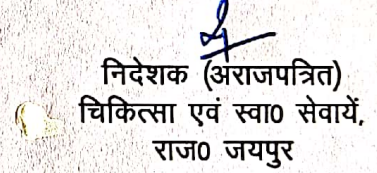 निदेशक (अराजपत्रित)
चिकित्सा एवं स्वा0 सेवायें,
राज0 जयपुर